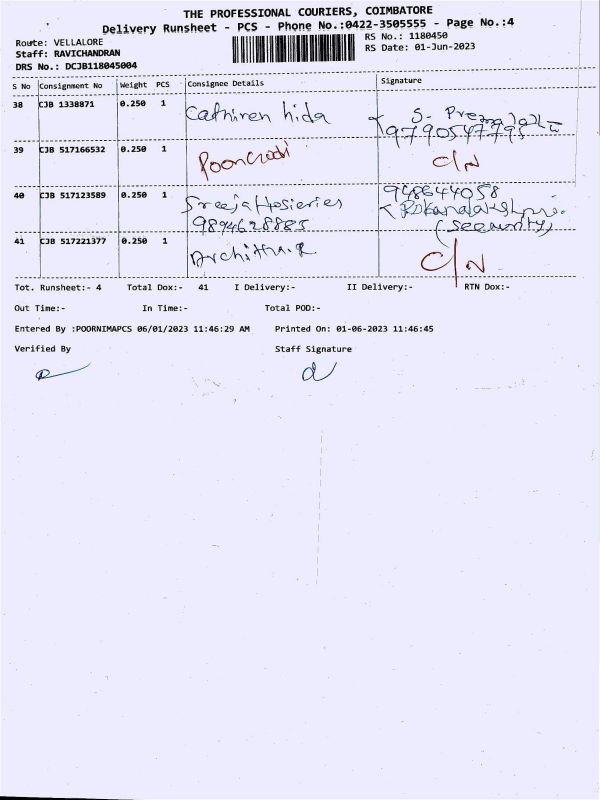 THE PROFESSIONAL COURIERS, COIMBATORE
Delivery Runsheet - PCS - Phone No.:0422-3505555 - Page No.:4
Route: VELLALORE
Staff: RAVICHANDRAN
DRS No.: DCJB118045004
RS No.: 1180450
RS Date: 01-Jun-2023
S No Consignment No Weight PCS Consignee Details Signature
38 CJB 1338871 0.250 1 Cathiren hida S. Prema
9790547795
39 CJB 517166532 0.250 1 Poongodi C/N
40 CJB 517123589 0.250 1 Sreeja Hosieries 948644058
9894628885 (Security)
41 CJB 517221377 0.250 1 C/N
Tot. Runsheet:- 4 Total Dox:- 41 I Delivery:- II Delivery:- RTN Dox:-
Out Time:- In Time:- Total POD:-
Entered By :POORNIMAPCS 06/01/2023 11:46:29 AM Printed On: 01-06-2023 11:46:45
Verified By Staff Signature